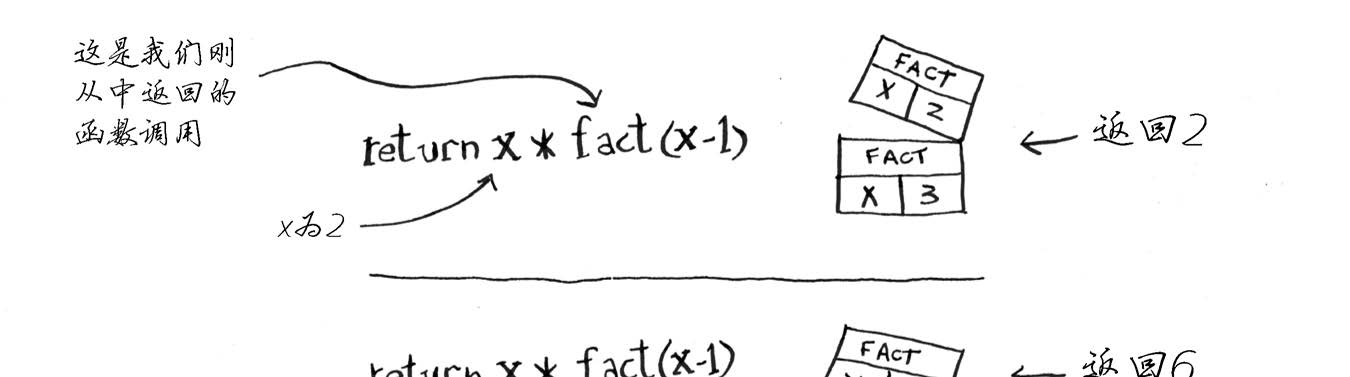 这是我们刚
从中返回的
函数调用
return x * fact(x-1)
x为2
FACT
X 2
FACT
X 3
返回2
return x * fact(x-1)
FACT
返回6